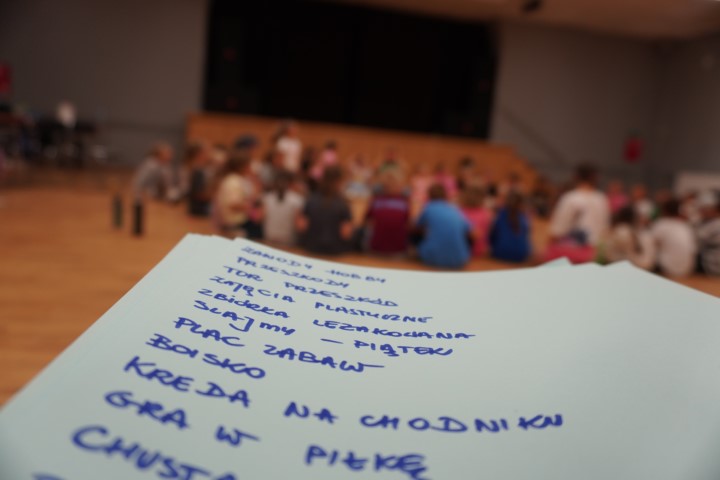 ZAWODY HOBBY
PRZESZKODY
TOR PRZESZKÓD
ZAJĘCIA PLASTYCZNE
ZBIÓRKA LEŻAKOWANA
SLAJMY - PIĄTEK
PLAC ZABAW
BOISKO
KREDA NA CHODNIKU
GRA W PIŁKĘ
CHUSTA